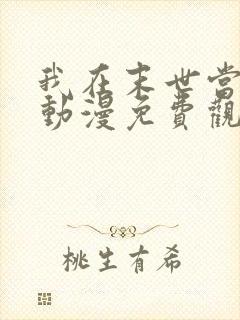 我在末世當
動漫免費觀
桃生有希